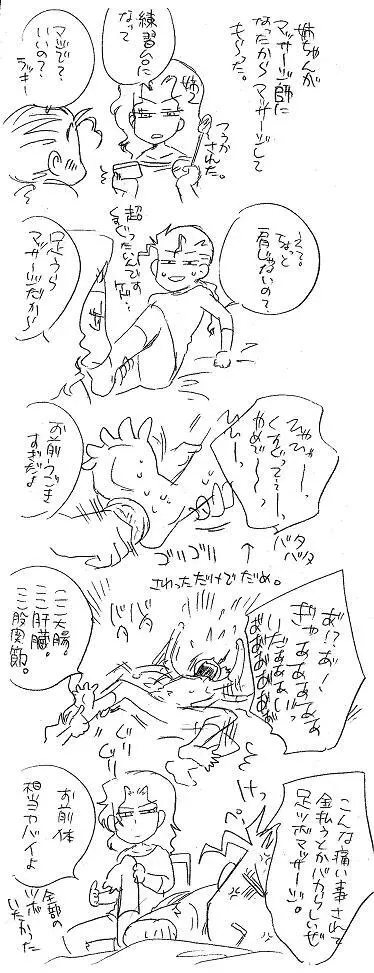 姉ちゃんが
マッサージ師に
なったから マッサージして
も〜らった。
練習台に
なって
姉→
マジで？
いいの？
ラッキー
つぅか
された。
えっ。
ちょっと
肩じゃないの？
超
くすぐったいんです
けど…
足うら
マッサージだから
ひゃひゃーっ、
くすぐってーっ、
やめでーっ、
ひーっ。
お前うごき
すぎだよ
バタ
バタ
↑
さわっただけでだめ。
ゴリゴリ
あ!?あ!
ぎゃああああ
いだぁあぁい
ああああああ
バタ
バタ
ここ大腸。
ここ肝臓。
ここ股関節。
こんな痛い事されて
金払うとかバカらしいぜ
足ツボマッサージ。
お前体
相当ヤバイよ
全部の
ツボ
いたかった